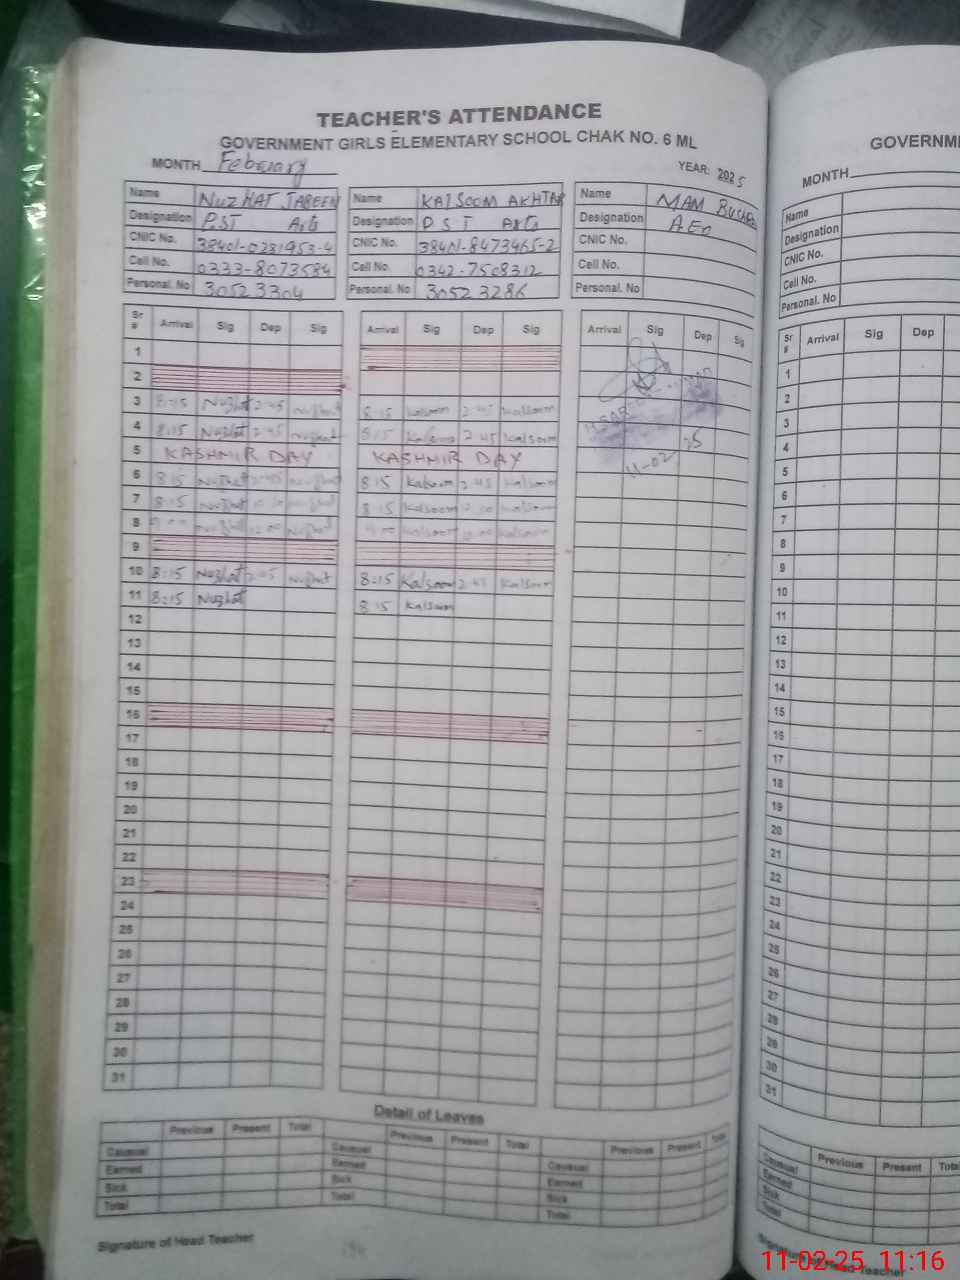 TEACHER'S ATTENDANCE
GOVERNMENT GIRLS ELEMENTARY SCHOOL CHAK NO. 6 ML
MONTH Febuary YEAR: 2025
Name NUZHAT JABEEN Name KALSOOM AKHTAR Name MAM BUSHRA
Designation PST Arts Designation PST Arts Designation AEO
CNIC No. 38401-0281953-4 CNIC No. 38401-8473465-2 CNIC No.
Cell No. 0333-8073584 Cell No. 0342-7508312 Cell No.
Personal. No 30523304 Personal. No 30523286 Personal. No
Sr # Arrival Sig Dep Sig Arrival Sig Dep Sig Arrival Sig Dep Sig
1
2
3 8:15 Nuzhat 2:45 Nuzhat 8:15 Kalsoom 2:45 Kalsoom
4 8:15 Nuzhat 2:45 Nuzhat 8:15 Kalsoom 2:45 Kalsoom
5 KASHMIR DAY KASHMIR DAY 11-02-25
6 8:15 Nuzhat 2:45 Nuzhat 8:15 Kalsoom 2:45 Kalsoom
7 8:15 Nuzhat Nuzhat 8:15 Kalsoom 12:00 Kalsoom
8 9:00 Nuzhat 12:00 Nuzhat 9:00 Kalsoom 12:00 Kalsoom
9
10 8:15 Nuzhat 2:45 Nuzhat 8:15 Kalsoom 2:45 Kalsoom
11 8:15 Nuzhat 8:15 Kalsoom
12
13
14
15
16
17
18
19
20
21
22
23
24
25
26
27
28
29
30
31
Detail of Leaves
Previous Present Total Previous Present Total Previous Present Total
Causual Causual Causual
Earned Earned Earned
Sick Sick Sick
Total Total Total
Signature of Head Teacher
GOVERNM
MONTH
Name
Designation
CNIC No.
Cell No.
Personal. No
Sr # Arrival Sig Dep
1
2
3
4
5
6
7
8
9
10
11
12
13
14
15
16
17
18
19
20
21
22
23
24
25
26
27
28
29
30
31
Previous Present Total
Causual
Earned
Sick
Total
Signature of Head Teacher
11-02-25 11:16